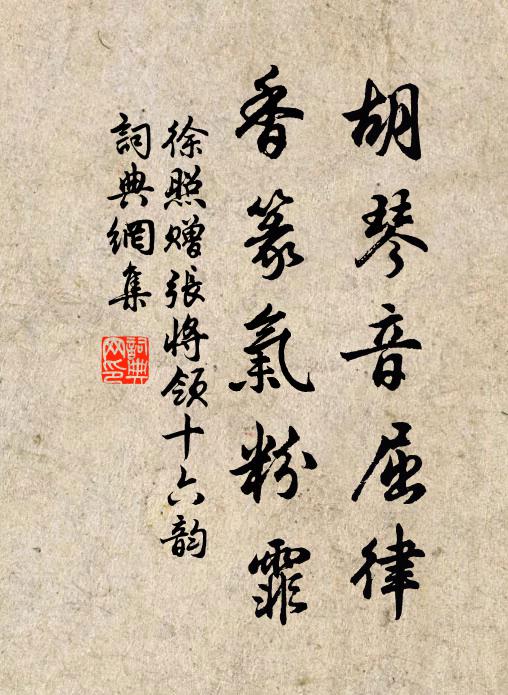 胡琴音屈律
香篆氣粉霏
徐照贈張將領十六韵
詞典網集
詞典网印